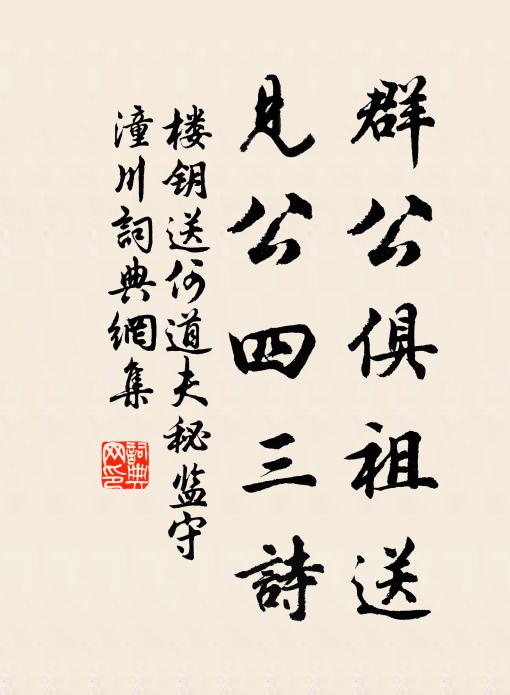 群公俱祖送
見公四三詩
楼钥送何道夫秘监守
潼川詞典網集
詞典
网印